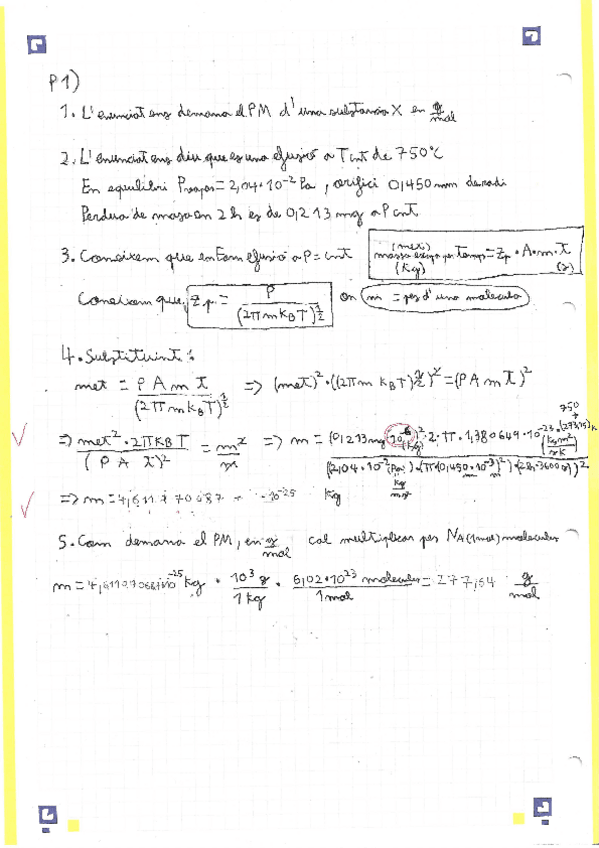 P1)
1. L'enunciat ens demana el PM d'una substancia X en g/mol
2. L'enunciat ens diu que es una efusió a T cnt de 750°C
En equilibri Pvapor = 2,04·10^-2 Pa, orifici 0,450 mm de radi
Perdua de masa en 2h es de 0,213 mg a P cnt
3. Coneixem que en Fem efusió a P = cnt
(met) temps = Zp · A · m · t
(Kg) (s)
Coneixem que, Zp = P / (2π m kB T)^1/2 on m = pes d'una molecula
4. Substituint:
met = P A m t / (2π m kB T)^1/2 => (met)^2 · ((2π m kB T)^1/2)^2 = (P A m t)^2
=> met^2 · 2π KB T / (P A t)^2 = m^2/m => m = (0,213 mg (10^-6 (Kg))^2 · 2 · π · 1,380649·10^-23 (Kg m^2 / s^2 K) · (750 + 273,15) K / ((2,04·10^-2 (Pa) · (π (0,450·10^-3)^2) · (2h · 3600 s))^2
Kg
=> m = 10^-25 Kg
5. Com demana el PM, en g/mol cal multiplicar per NA (1 mol) molecules
10^-25 Kg · 10^3 g / 1 Kg · 6,02·10^23 molecules / 1 mol = 277,64 g/mol